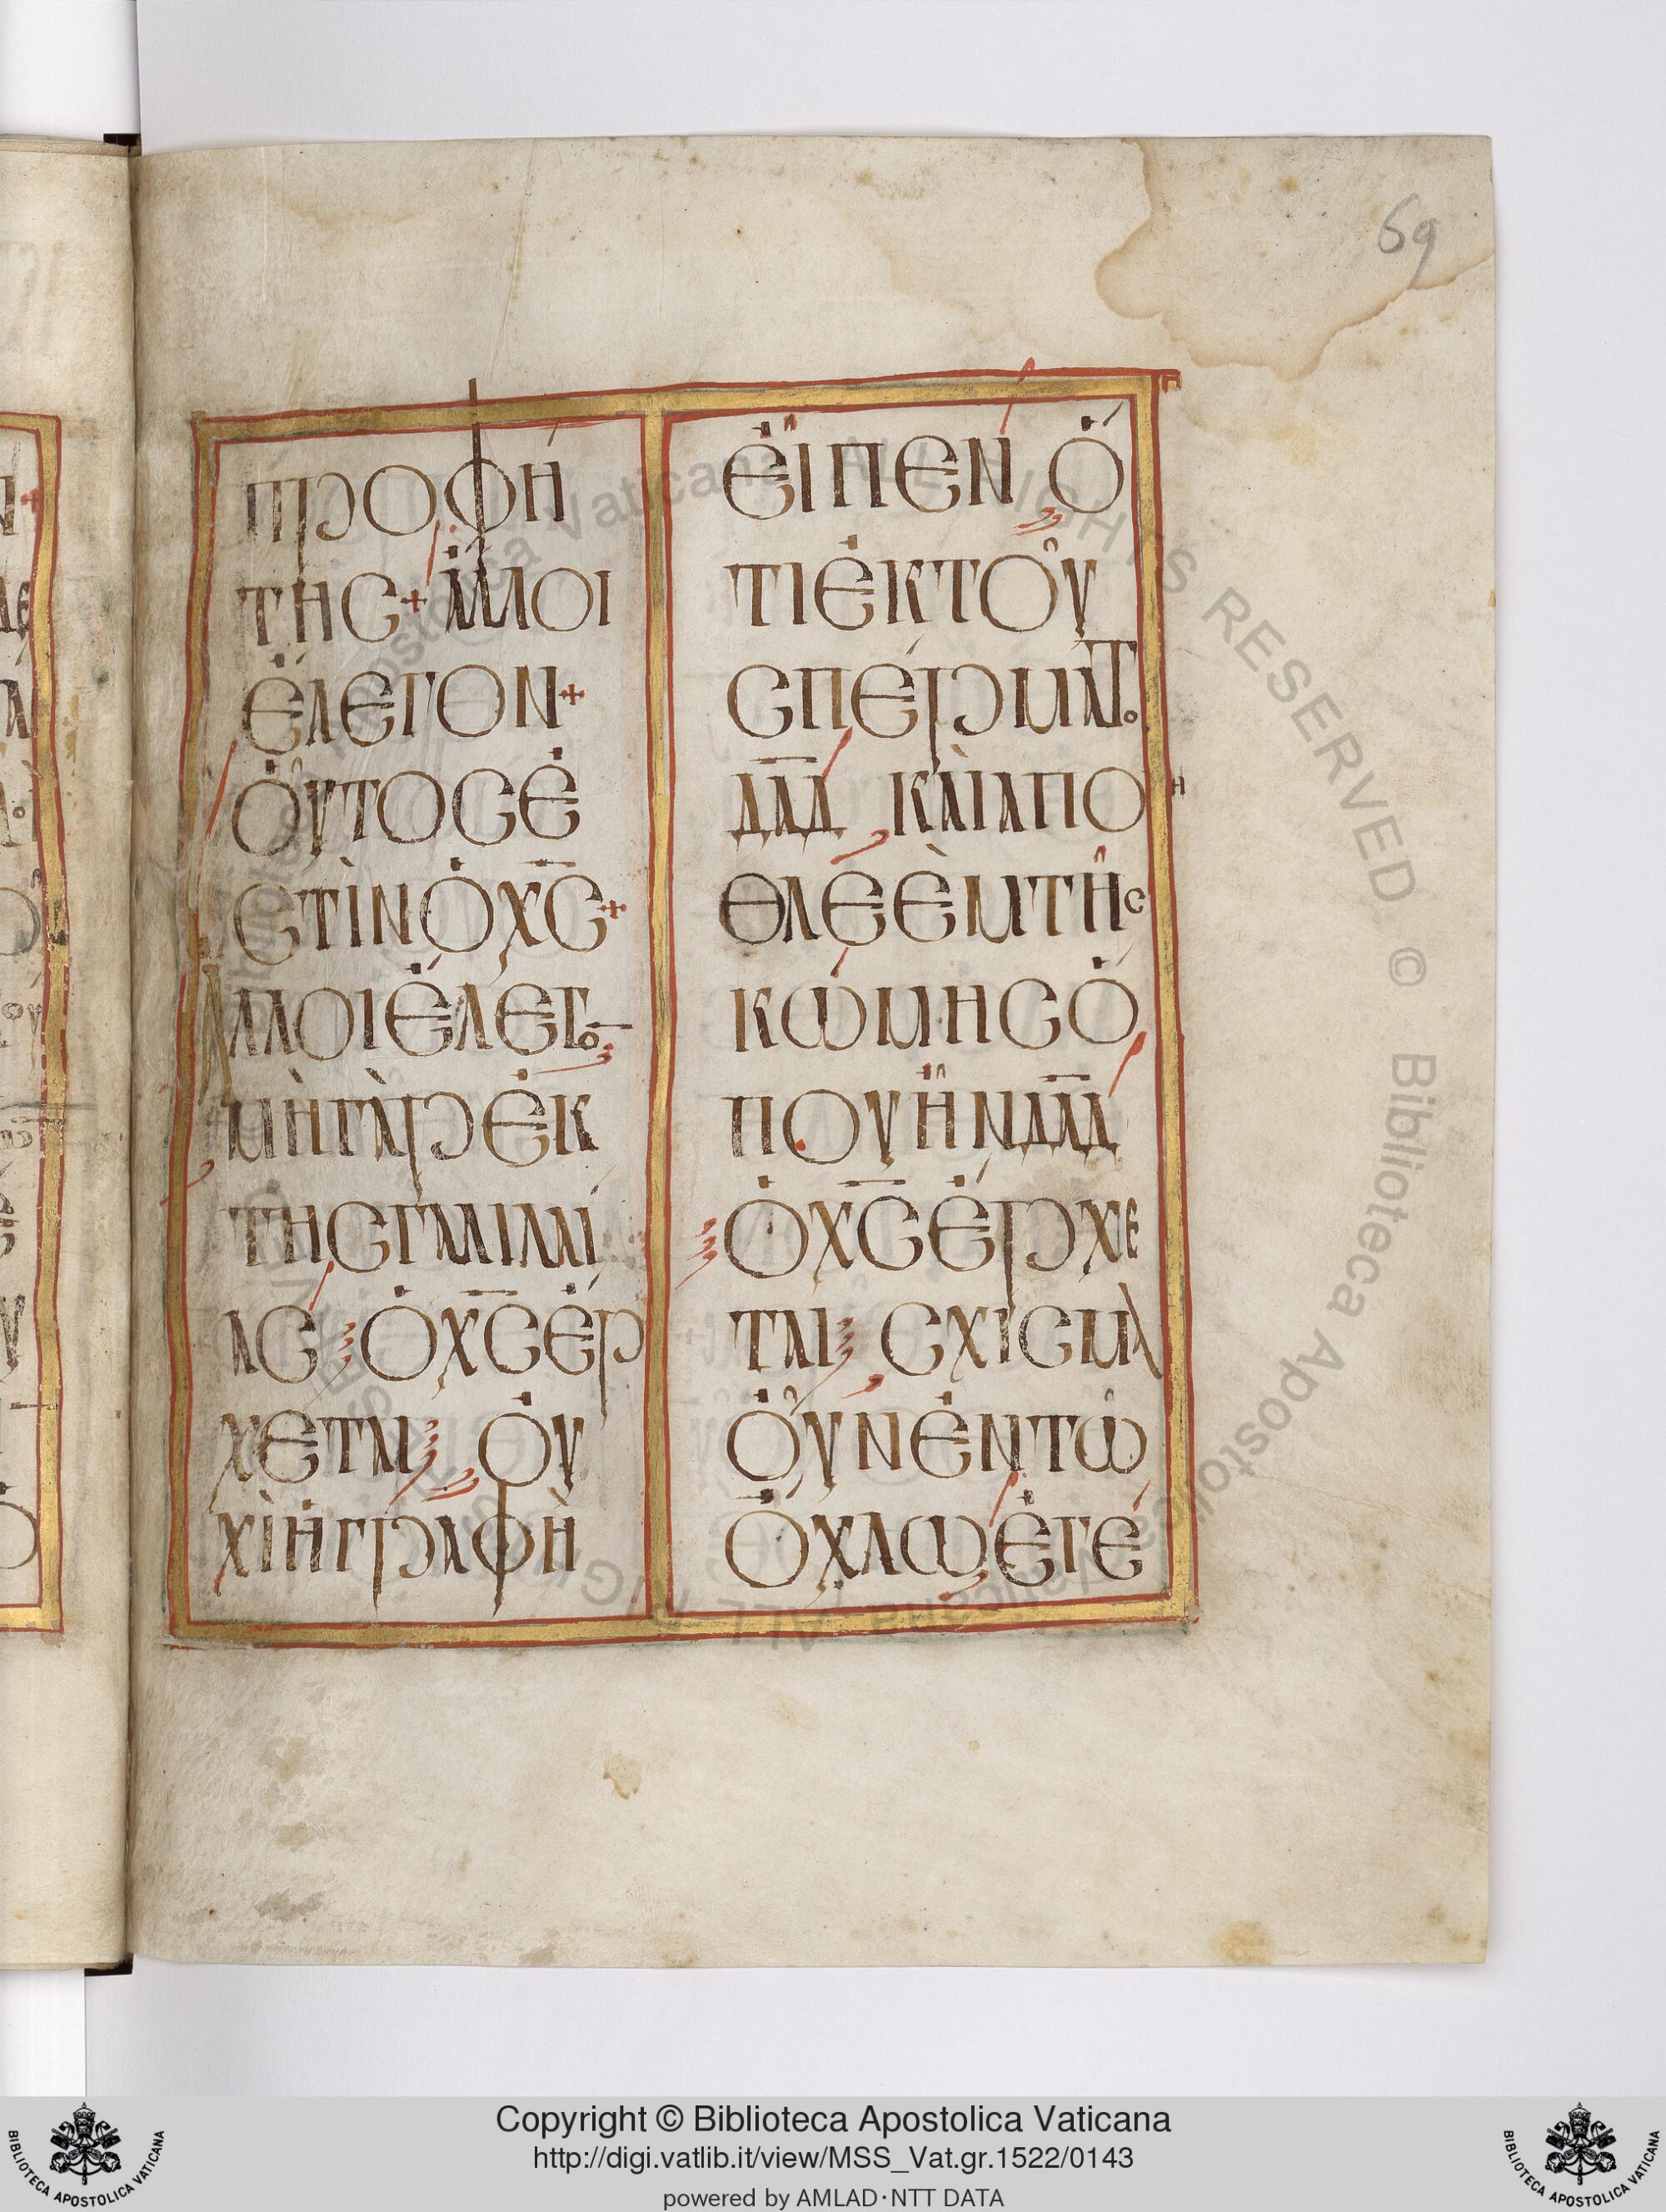 69
προφή
της + ἄλλοι
ἔλεγον +
οὗτοσἐ
στὶνὁχ̅ς̅ +
Ἄλλοιἔλεγο̅
μὴγὰρἐκ
τησγαλιλαί
ας ὁχ̅ς̅ἔρ
χεται οὐ
χὶἡγραφὴ
εἶπεν ὅ
τιἐκτοῦ
σπέρματο
δ̅α̅δ̅ καὶαπο
θλεὲμτῆς
κώμησὅ
πουἦνδ̅α̅δ̅
ὁχ̅ς̅ἔρχε
ται σχίσμα
οὖνἐντῶ
ὄχλωἐγέ
Copyright © Biblioteca Apostolica Vaticana
http://digi.vatlib.it/view/MSS_Vat.gr.1522/0143
powered by AMLAD·NTT DATA
BIBLIOTECA APOSTOLICA VATICANA
BIBLIOTECA APOSTOLICA VATICANA